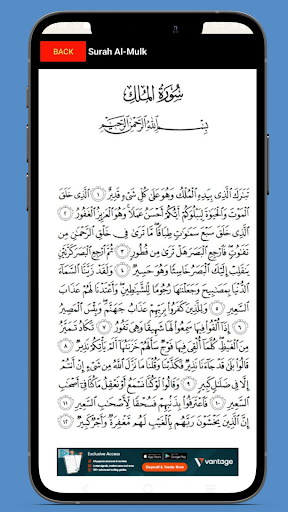 BACK Surah Al-Mulk
سُورَةُ الْمُلْكِ
بِسْمِ اللَّهِ الرَّحْمَٰنِ الرَّحِيمِ
تَبَٰرَكَ الَّذِي بِيَدِهِ الْمُلْكُ وَهُوَ عَلَىٰ كُلِّ شَيْءٍ قَدِيرٌ ١ الَّذِي خَلَقَ
الْمَوْتَ وَالْحَيَوٰةَ لِيَبْلُوَكُمْ أَيُّكُمْ أَحْسَنُ عَمَلًا وَهُوَ الْعَزِيزُ الْغَفُورُ
٢ الَّذِي خَلَقَ سَبْعَ سَمَٰوَٰتٍ طِبَاقًا مَّا تَرَىٰ فِي خَلْقِ الرَّحْمَٰنِ مِن
تَفَٰوُتٍ فَارْجِعِ الْبَصَرَ هَلْ تَرَىٰ مِن فُطُورٍ ٣ ثُمَّ ارْجِعِ الْبَصَرَ كَرَّتَيْنِ
يَنقَلِبْ إِلَيْكَ الْبَصَرُ خَاسِئًا وَهُوَ حَسِيرٌ ٤ وَلَقَدْ زَيَّنَّا السَّمَاءَ
الدُّنْيَا بِمَصَٰبِيحَ وَجَعَلْنَٰهَا رُجُومًا لِّلشَّيَٰطِينِ وَأَعْتَدْنَا لَهُمْ عَذَابَ
السَّعِيرِ ٥ وَلِلَّذِينَ كَفَرُوا بِرَبِّهِمْ عَذَابُ جَهَنَّمَ وَبِئْسَ الْمَصِيرُ
٦ إِذَا أُلْقُوا فِيهَا سَمِعُوا لَهَا شَهِيقًا وَهِيَ تَفُورُ ٧ تَكَادُ تَمَيَّزُ
مِنَ الْغَيْظِ كُلَّمَا أُلْقِيَ فِيهَا فَوْجٌ سَأَلَهُمْ خَزَنَتُهَا أَلَمْ يَأْتِكُمْ نَذِيرٌ ٨
قَالُوا بَلَىٰ قَدْ جَاءَنَا نَذِيرٌ فَكَذَّبْنَا وَقُلْنَا مَا نَزَّلَ اللَّهُ مِن شَيْءٍ إِنْ أَنتُمْ
إِلَّا فِي ضَلَٰلٍ كَبِيرٍ ٩ وَقَالُوا لَوْ كُنَّا نَسْمَعُ أَوْ نَعْقِلُ مَا كُنَّا فِي أَصْحَٰبِ
السَّعِيرِ ١٠ فَاعْتَرَفُوا بِذَنبِهِمْ فَسُحْقًا لِّأَصْحَٰبِ السَّعِيرِ ١١
إِنَّ الَّذِينَ يَخْشَوْنَ رَبَّهُم بِالْغَيْبِ لَهُم مَّغْفِرَةٌ وَأَجْرٌ كَبِيرٌ ١٢
Exclusive Access
App Store Google Play
Deposit & Trade Now
vantage